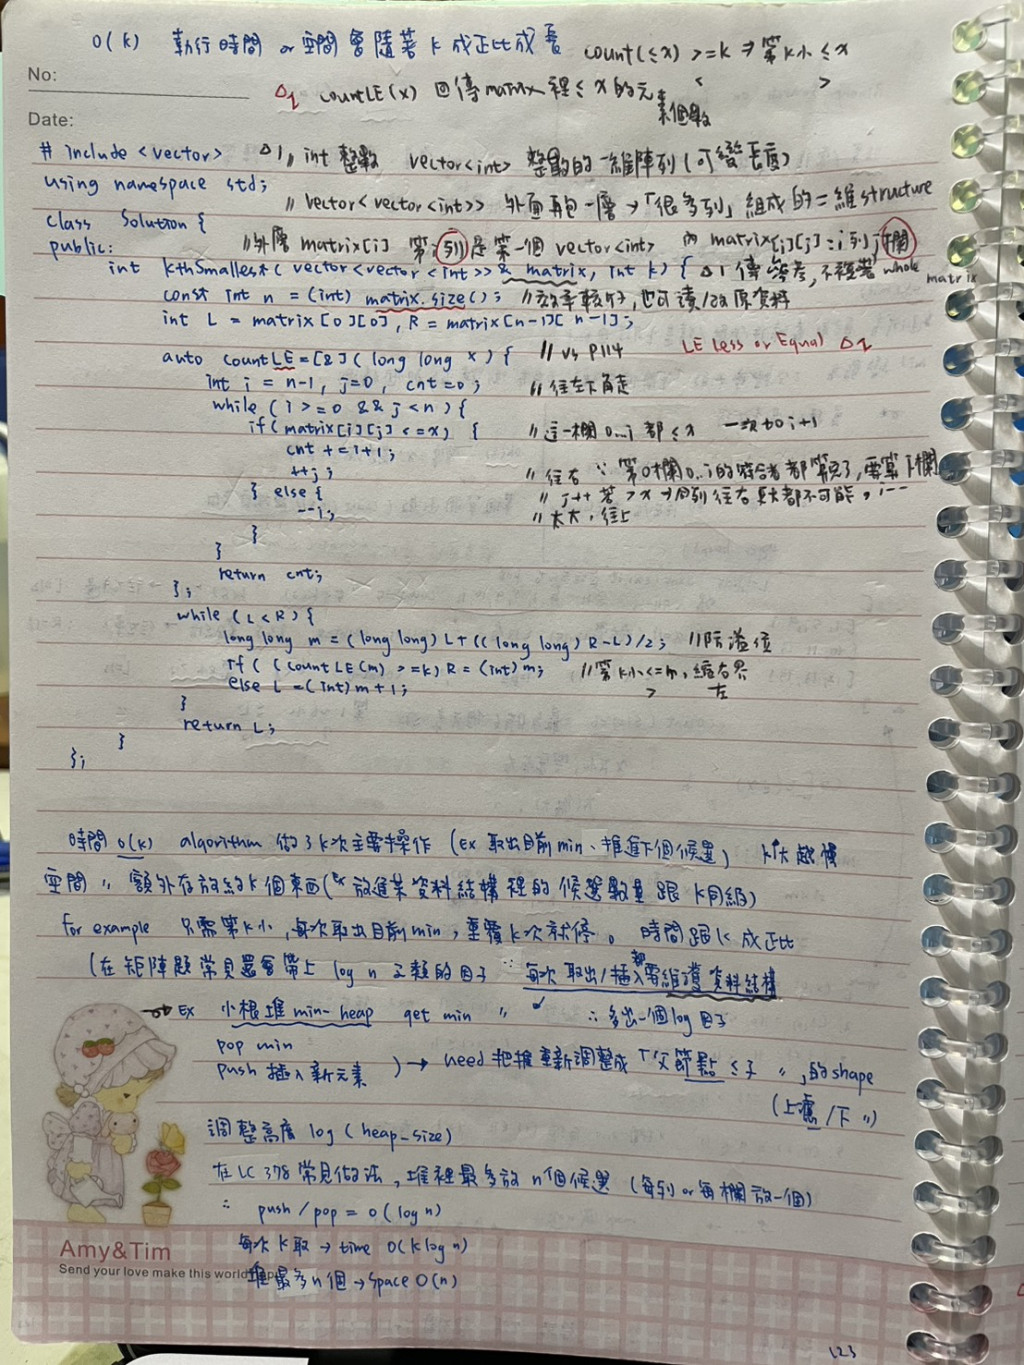 O(k) 執行時間 or 空間會隨著 k 成正比成長 count(≤x) >=k ⇒ 第k小 ≤ x
< >
No:
Δ2 countLE(x) 回傳 matrix 裡 ≤ x 的元素個數
Date:
# include <vector> Δ1 // int 整數 vector<int> 整數的一維陣列(可變長度)
using namespace std; // vector<vector<int>> 外面再包一層→「很多列」組成的二維structure
class Solution {
public: //外層 matrix[i] 第i列是第一個 vector<int> 內 matrix[i][j]=i列j欄
int kthSmallest( vector<vector<int>>& matrix, int k) { Δ1 傳參考,不複製 whole matrix
const int n = (int) matrix.size(); //效率較好,也可讀/改原資料
int L = matrix[0][0], R = matrix[n-1][n-1];
LE Less or Equal Δ2
auto countLE=[&](long long x) { // vs P114
int i = n-1, j=0, cnt=0; // 從左下角走
while (i >= 0 && j < n) {
if(matrix[i][j] <=x) { // 這一欄 0..i 都 ≤x 一次加 i+1
cnt += i+1;
++j; // 往右 ∵ 第0欄0..i的符合者都算完了,要算下欄
} else { // j++ 若 >x → 同列往右更大都不可能, i--
--i; // 太大,往上
}
}
return cnt;
};
while (L<R){
long long m = (long long) L+((long long) R-L)/2; //防溢位
if ( (countLE(m) >=k) R = (int)m; //第k小<=m,縮右界
else L =(int)m+1; > 左
}
return L;
}
};
時間 O(k) algorithm 做了k次主要操作 (Ex 取出目前min、推進下個候選) k↑大越慢
空間 〃 額外存放約k個東西( 放進某資料結構裡的候選數量跟 k同級)
for example 只需第k小,每次取出目前min,重覆k次就停。 時間跟k成正比
(在矩陣題常見還會帶上 log n 之類的因子 ∵ 每次取出/插入都需維護資料結構
→ Ex 小根堆 min-heap get min 〃 ∴ 多出一個log因子
pop min
push 插入新元素 ) → need 把堆重新調整成「父節點 ≤ 子 〃 ,的shape
(上濾/下〃)
調整高度 log(heap_size)
在LC 378 常見做法,堆裡最多放 n個候選 (每列or每欄放一個)
∴ push/pop = O(log n)
每次 k 取 → time O(k log n)
堆最多n個 → space O(n)
Amy&Tim
Send your love make this world
123